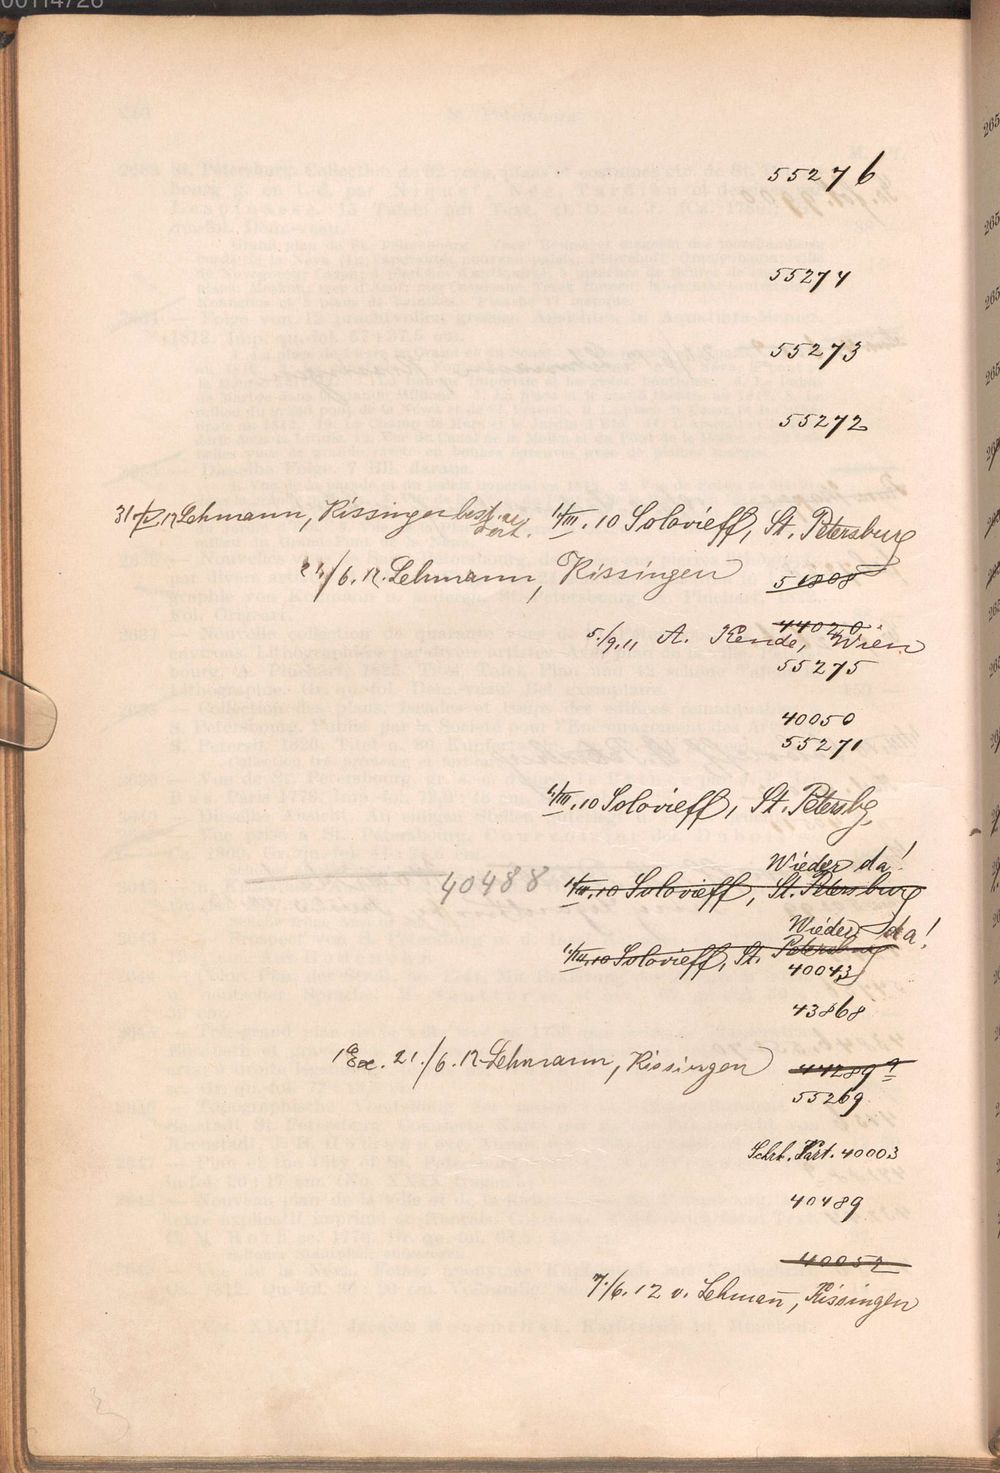 55276
55274
55273
55272
Lehmann, Kissingen 4/III. 10 Solovieff, St. Petersburg
/6. 12. Lehmann, Kissingen 51808
44020
5./9. 11 A. Kende, Wien
55275
40050
55271
4/III. 10 Solovieff, St. Petersbg
Wieder da!
40488 4/III. 10 Solovieff, St. Petersburg
Wieder da!
4/III. 10 Solovieff, St. Petersburg
40043
43868
1 Ex. 21./6. 12 Lehmann, Kissingen 44289
55269
40003
40489
40052
7./6. 12 v. Lehmann, Kissingen